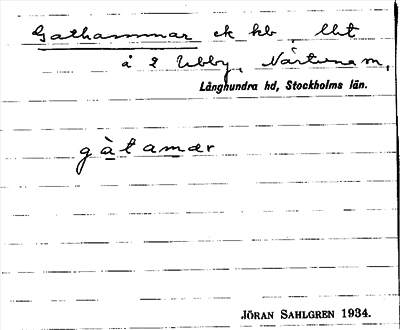 Gathammar ek kb, Lht
å 2 Ubby, Närtuna sn,
Långhundra hd, Stockholms län.
gàtamar
JÖRAN SAHLGREN 1934.